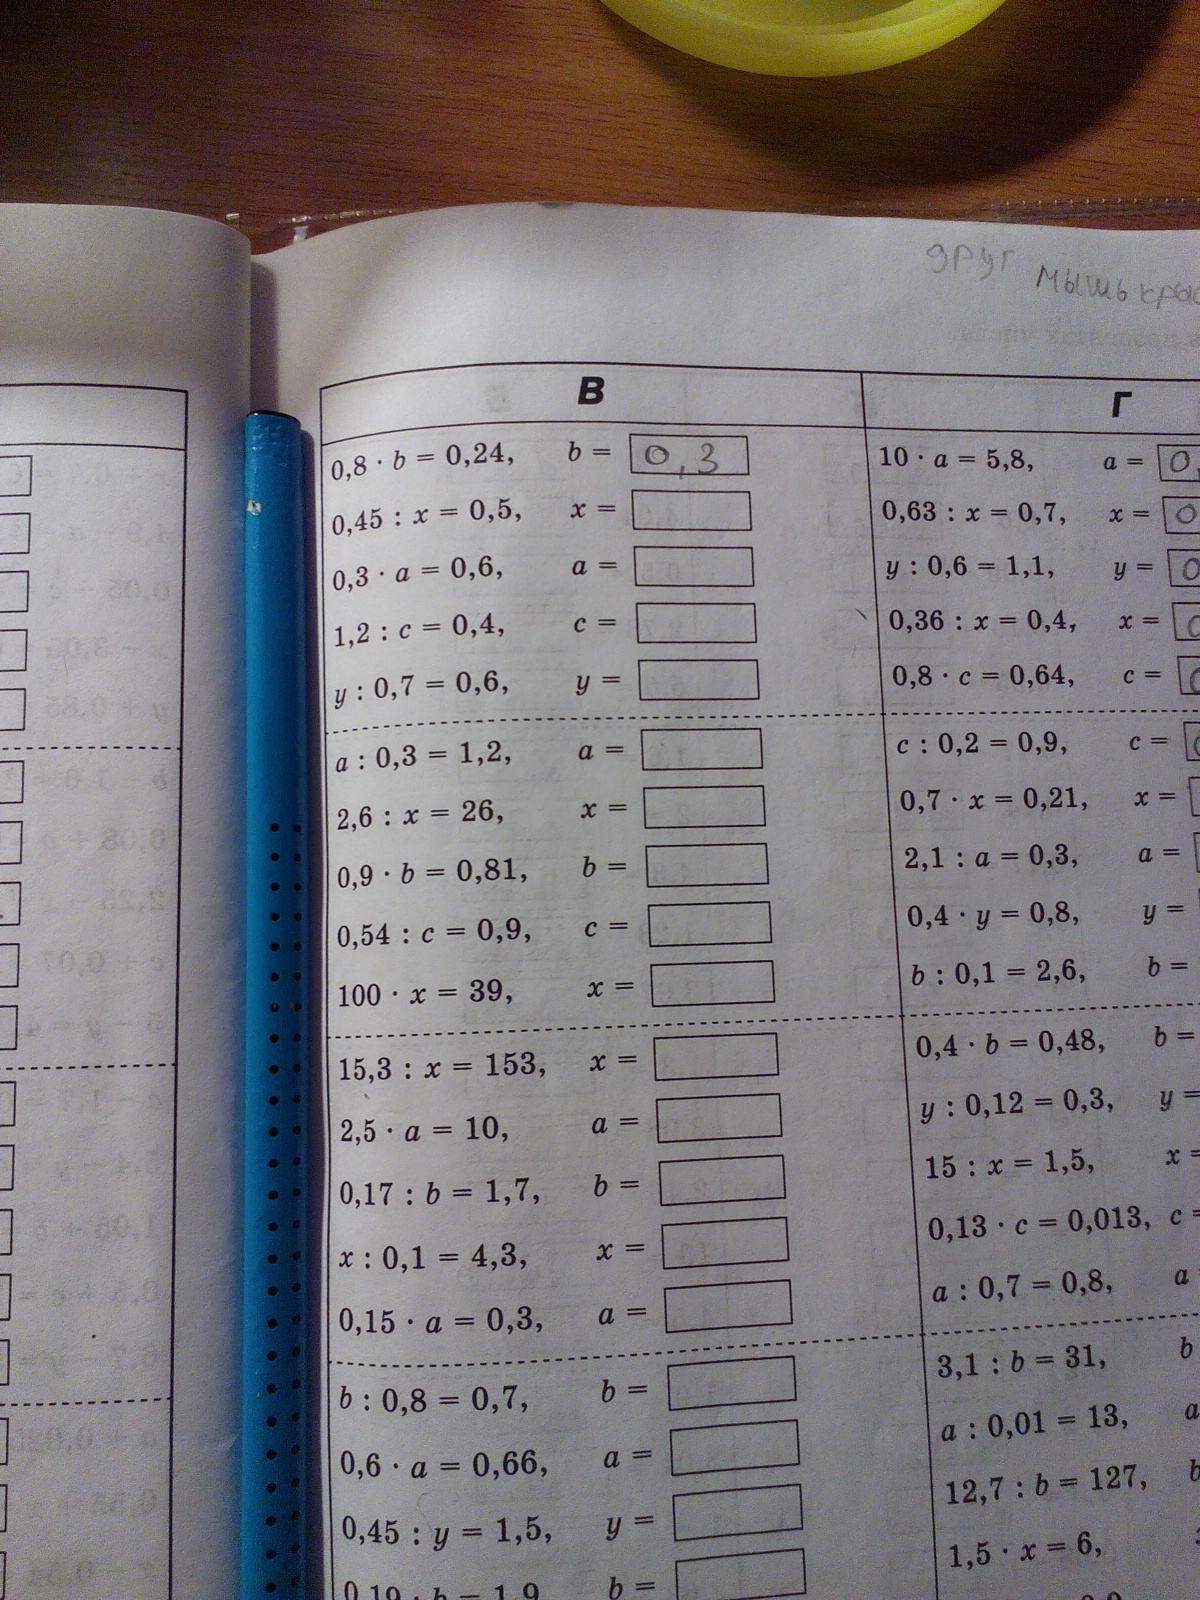 друг
мышь
В
0,8 · b = 0,24, b = 0,3
0,45 : x = 0,5, x =
0,3 · a = 0,6, a =
1,2 : c = 0,4, c =
y : 0,7 = 0,6, y =
a : 0,3 = 1,2, a =
2,6 : x = 26, x =
0,9 · b = 0,81, b =
0,54 : c = 0,9, c =
100 · x = 39, x =
15,3 : x = 153, x =
2,5 · a = 10, a =
0,17 : b = 1,7, b =
x : 0,1 = 4,3, x =
0,15 · a = 0,3, a =
b : 0,8 = 0,7, b =
0,6 · a = 0,66, a =
0,45 : y = 1,5, y =
0,19 : b = 1,9 b =
Г
10 · a = 5,8, a = 0,
0,63 : x = 0,7, x = 0
y : 0,6 = 1,1, y = 0
0,36 : x = 0,4, x = 0
0,8 · c = 0,64, c = 0
c : 0,2 = 0,9, c =
0,7 · x = 0,21, x =
2,1 : a = 0,3, a =
0,4 · y = 0,8, y =
b : 0,1 = 2,6, b =
0,4 · b = 0,48, b =
y : 0,12 = 0,3, y =
15 : x = 1,5, x =
0,13 · c = 0,013, c =
a : 0,7 = 0,8, a
3,1 : b = 31, b
a : 0,01 = 13, a
12,7 : b = 127, b
1,5 · x = 6,